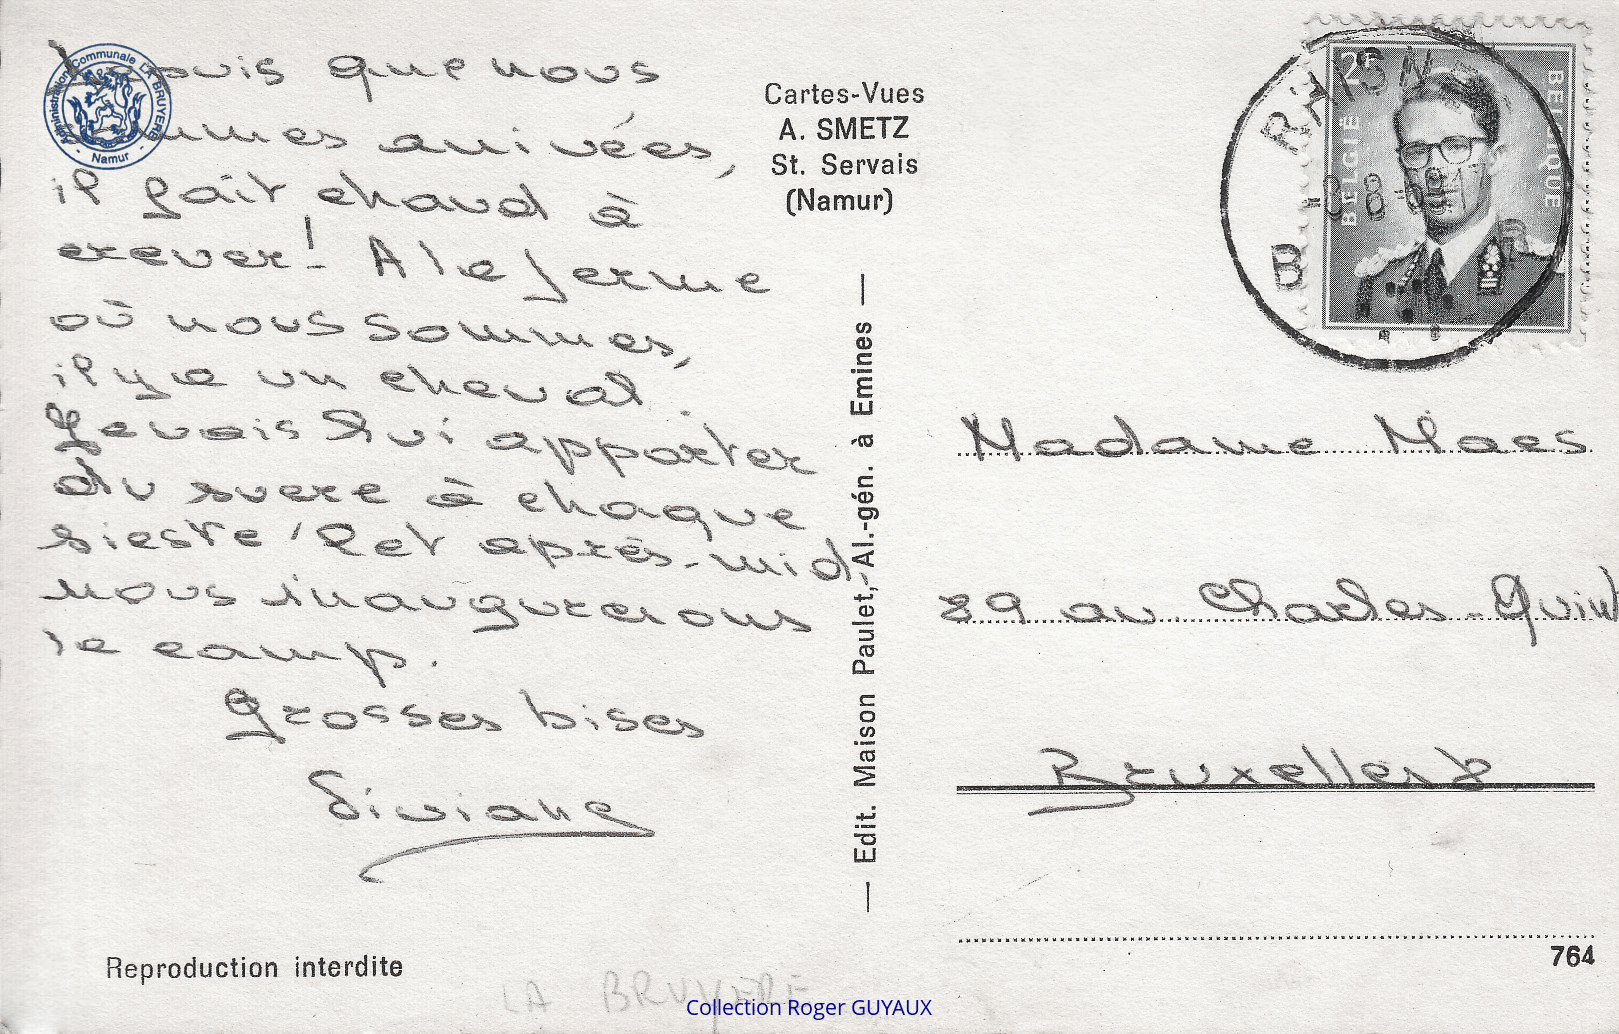 Depuis que nous
sommes arrivées,
il fait chaud à
crever! A la ferme
où nous sommes,
il y a un cheval
Je vais lui apporter
du sucre à chaque
sieste! Cet après-midi,
nous inaugurerons
le camp.
Grosses bises
Viviane
Administration Communale LA BRUYERE
- Namur -
Cartes-Vues
A. SMETZ
St. Servais
(Namur)
— Edit. Maison Paulet, Al.-gén. à Emines —
2F
BELGIË
BELGIQUE
RHISN
B
B
Madame Maes
29 av Charles-Quint
Bruxelles 8
764
Reproduction interdite
LA BRUYERE
Collection Roger GUYAUX